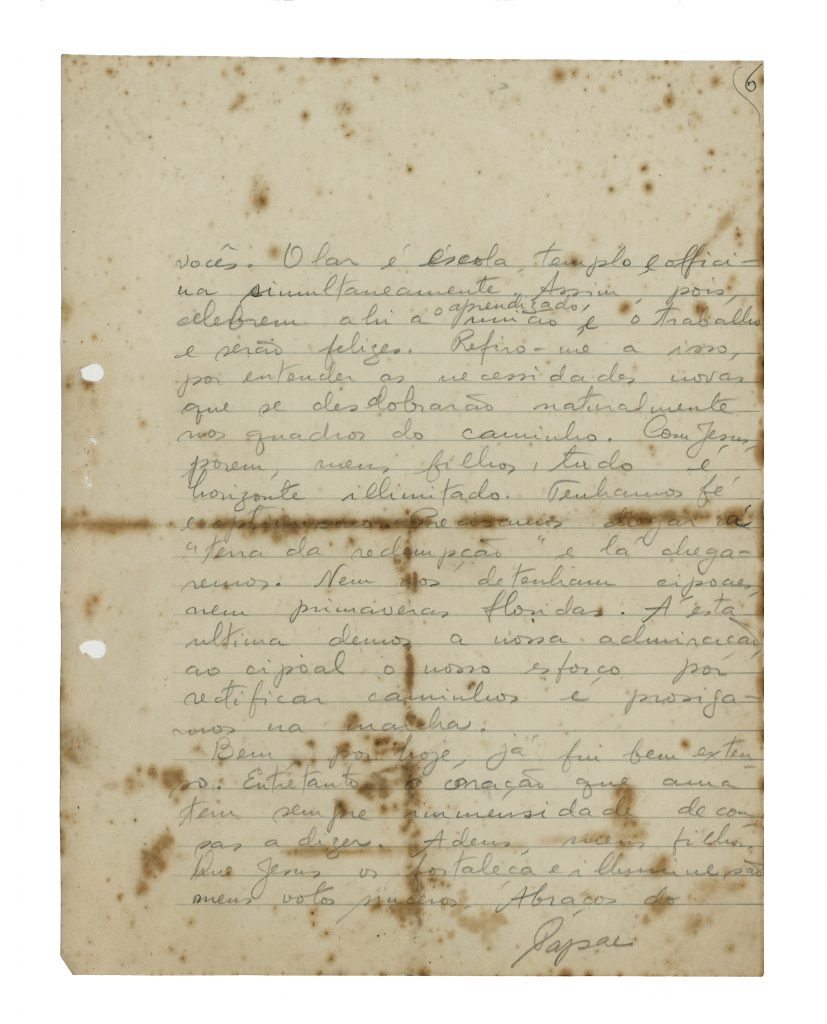 6
vocês. O lar é escola, templo e offici-
na simultaneamente. Assim, pois,
celebrem ahi a união, o aprendizado, e o trabalho
e serão felizes. Refiro-me a isso,
por entender as necessidades novas
que se desdobrarão naturalmente
nos quadros do caminho. Com Jesus,
porem, meus filhos, tudo é
horizonte illimitado. Tenhamos fé
e optimismo. Precisamos chegar á
"terra da redempção" e lá chega-
remos. Nem nos detenham cipoaes,
nem primaveras floridas. A esta
ultima demos a nossa admiração,
ao cipoal o nosso esforço por
rectificar caminhos e prosiga-
mos na marcha.
Bem, por hoje, já fui bem exten-
so. Entretanto o coração que ama
tem sempre immensidade de cou
sas a dizer. Adeus, meus filhos.
Que Jesus os fortaleça e illumine, são
meus votos sinceros. Abraços do
Papae